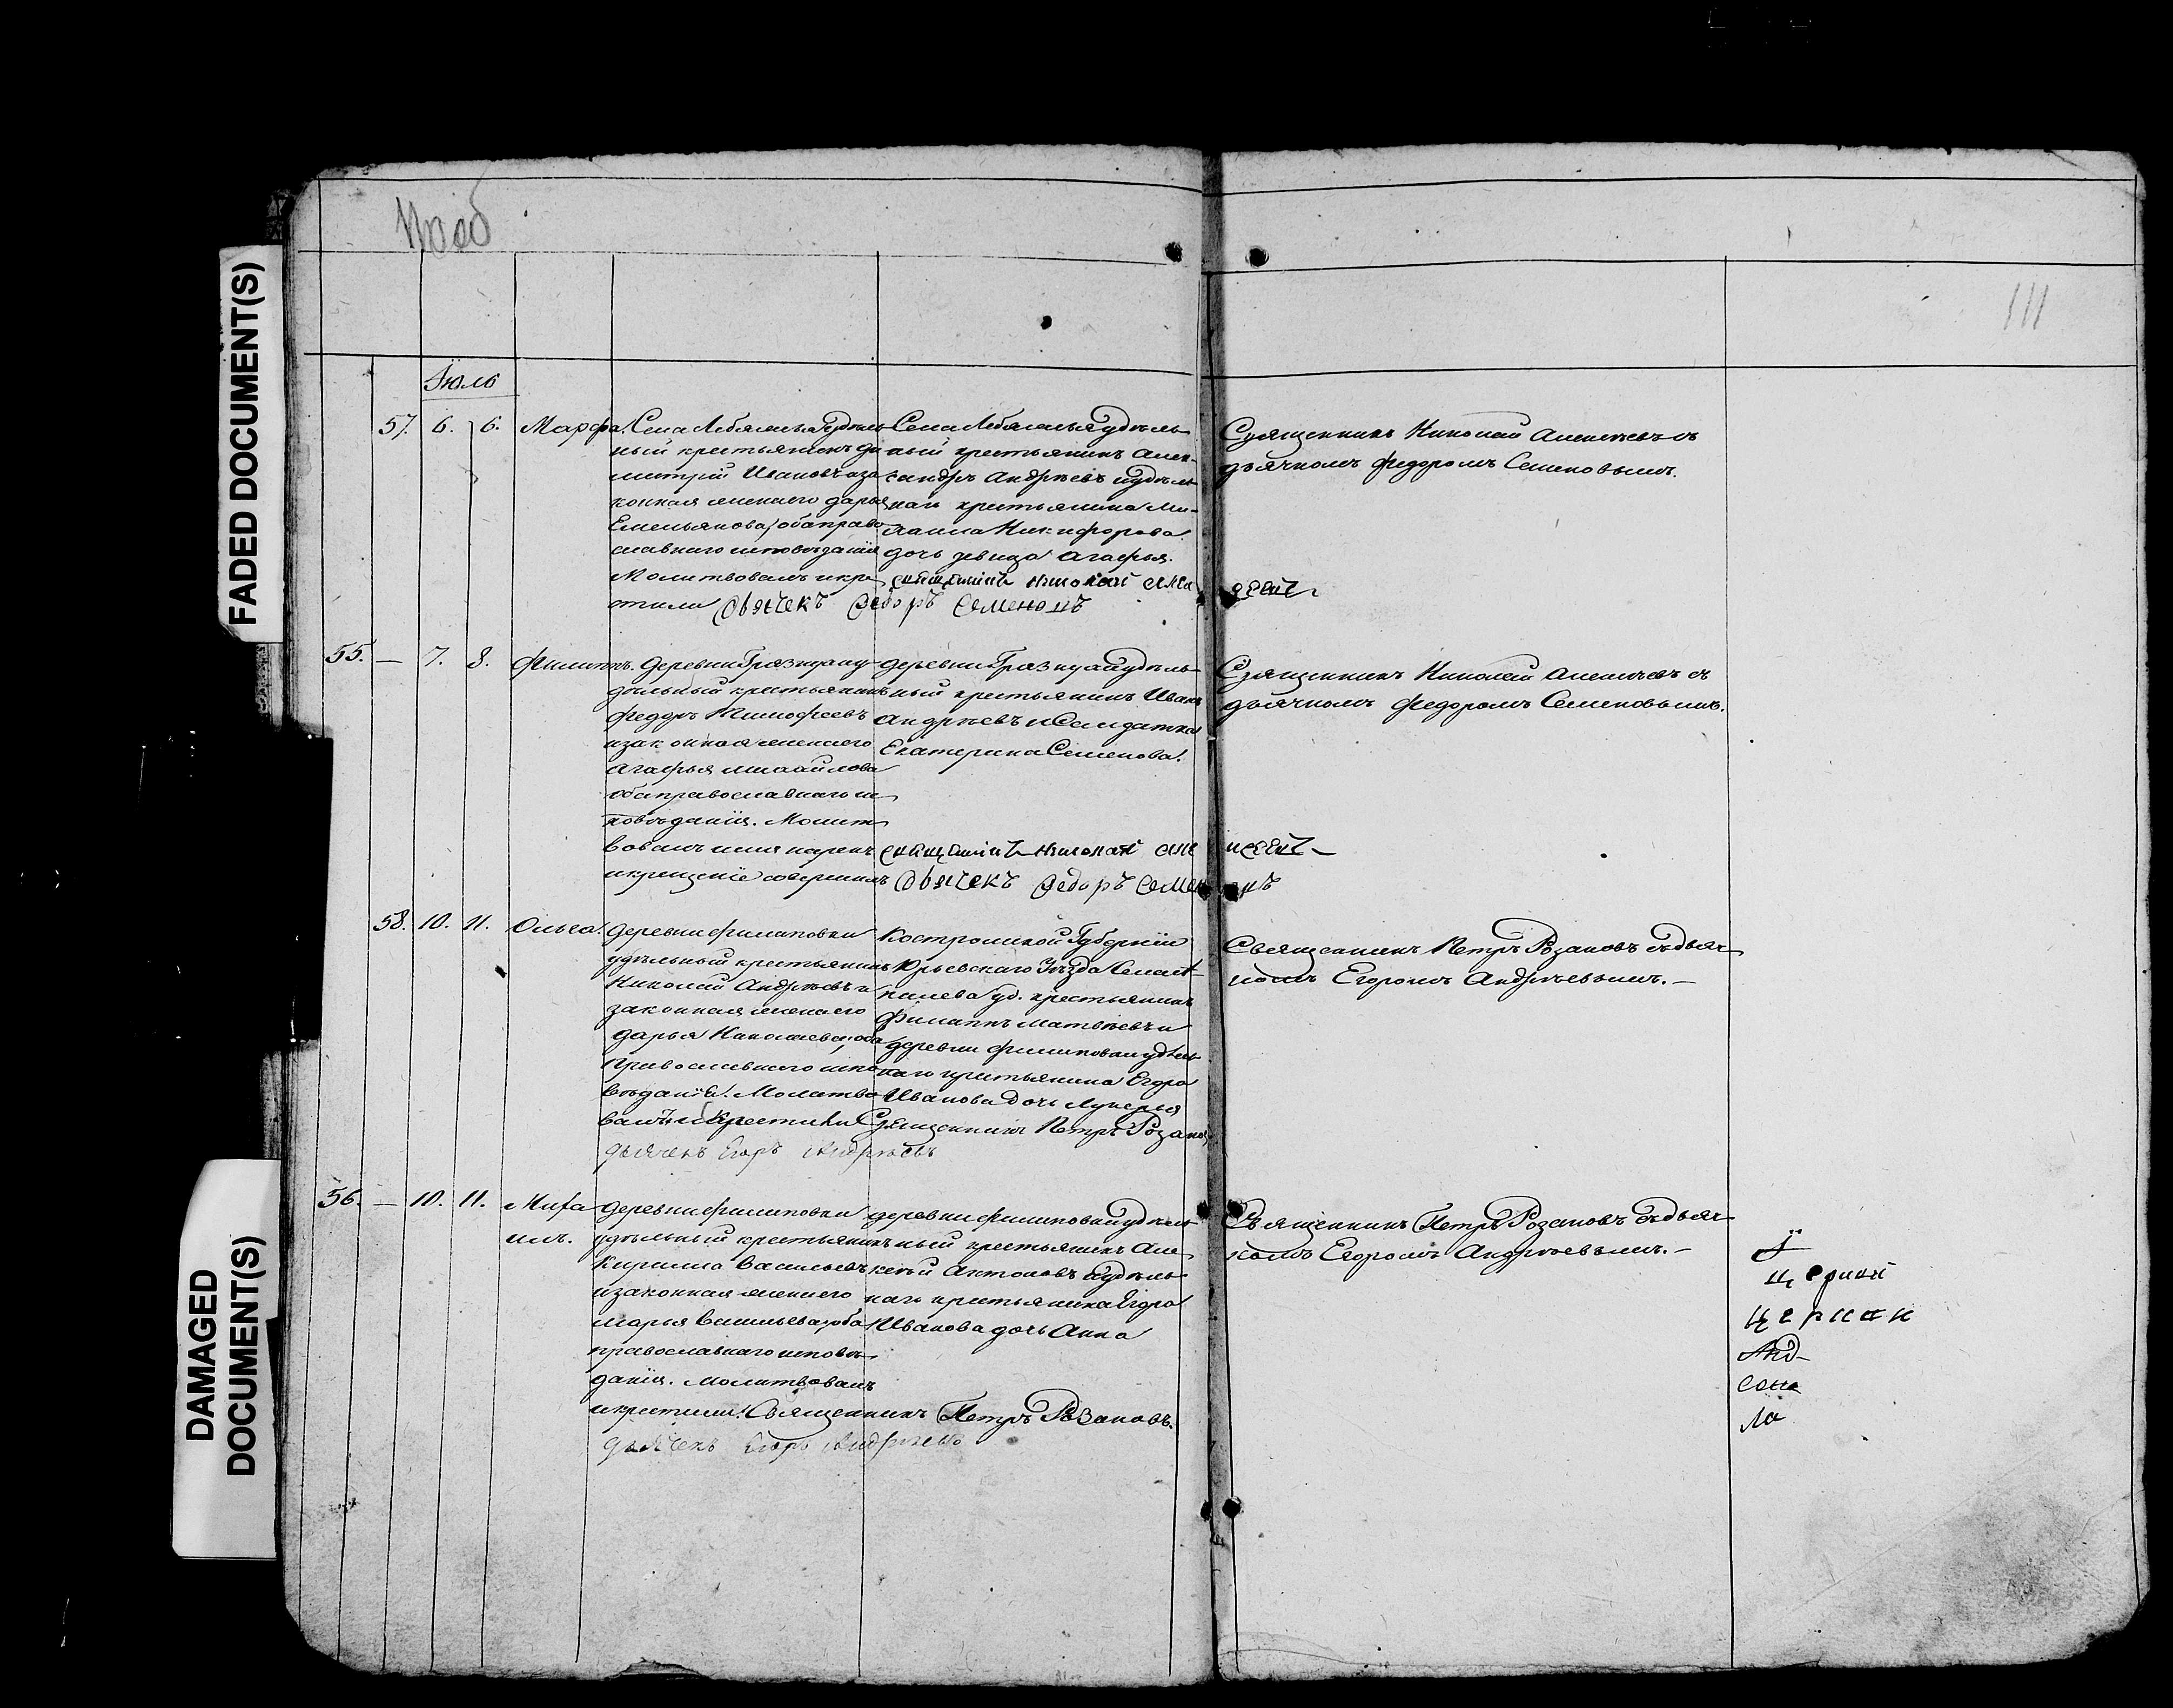 FADED DOCUMENT(S)
DAMAGED
DOCUMENT(S)
111
Іюль
57. 6. 6. Марфа.
Села Лебяжья удѣль
ный крестьянинъ Ди
митрій Ивановъ и за
конная жена его Дарья
Емельянова, оба право
славнаго исповѣданія
Молитвовалъ и кре
стили
Села Лебяжья удѣль
ный крестьянинъ Алек-
сандръ Андреевъ и удѣль
наго крестьянина Ми-
хаила Никифорова
дочь девица Агафья.
священникъ николай але ѯеевъ
Дьячекъ Федоръ Семеновъ
Священникъ Николай Алексѣевъ съ
дьячкомъ Федоромъ Семеновымъ.
55. — 7. 8. Филиппъ.
Деревни Грязнухи у
дѣльный крестьянинъ
Федоръ Тимофеевъ
и законная жена его
Агафья Михайлова
оба православнаго ис
повѣданія. Молит
вовалъ имя нарекъ
и крещеніе совершилъ
деревни Грязнухи удѣль
ный крестьянинъ Иванъ
Андреевъ и Солдатка
Екатерина Семенова.
священникъ николай але ѯеевъ
Дьячекъ Федоръ Семеновъ
Священникъ Николай Алексѣевъ съ
дьячкомъ Федоромъ Семеновымъ.
58. 10. 11. Ольга.
Деревни Филиповки
удѣльный крестьянинъ
Николай Андреевъ и
законная жена его
Дарья Николаева, оба
Православнаго испо
вѣданія. Молитво
валъ и Крестили
Костромской Губерніи
Юрьевскаго Уѣзда Села
уд. крестьянинъ
Филиппъ Матвѣевъ и
деревни Филиповки удѣль
наго крестьянина Егора
Иванова дочь Лукерья
Священникъ Петръ Розановъ
дьячекъ Егоръ Андреевъ
Священникъ Петръ Розановъ съ дьяч
комъ Егоромъ Андреевымъ. —
56. — 10. 11. Миха
илъ.
Деревни Филиповки
удѣльный крестьянинъ
Кирилла Васильевъ
и законная жена его
Марья Васильева, оба
православнаго исповѣ
данія. Молитвовалъ
и крестили.
деревни Филиповки удѣль
ный крестьянинъ Але
ксѣй Антоновъ и удѣль
наго крестьянина Егора
Иванова дочь Анна
Священникъ Петръ Розановъ.
дьячекъ Егоръ Андреевъ
Священникъ Петръ Розановъ съ дьяч
комъ Егоромъ Андреевымъ. —